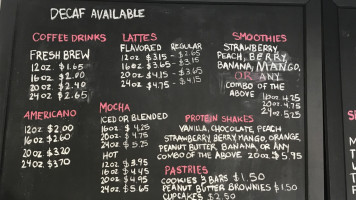 DECAF AVAILABLE
COFFEE DRINKS
FRESH BREW
12oz. $1.65
16oz $2.00
20oz $2.40
24oz $2.65
AMERICANO
12oz $2.00
16oz $2.60
20oz $3.20
24oz $3.70
LATTES
FLAVORED REGULAR
12oz $3.15 - $2.65
16oz $3.65 - $3.15
20oz $4.15 - $3.65
24oz $4.75 - $4.15
MOCHA
ICED OR BLENDED
16oz $4.25
20oz $4.75
24oz $5.25
HOT
12oz $3.95
16oz $4.45
20oz $4.95
24oz $5.65
SMOOTHIES
STRAWBERRY
PEACH, BERRY,
BANANA, MANGO,
OR ANY
COMBO OF THE
ABOVE
16oz 4.25
20oz 4.75
24oz 5.25
PROTEIN SHAKES
VANILLA, CHOCOLATE, PEACH
STRAWBERRY BERRY, MANGO, ORANGE
PEANUT BUTTER, BANANA, OR ANY
COMBO OF THE ABOVE. 20oz $5.95
PASTRIES
COOKIES 3 BARS $1.50
PEANUT BUTTER BROWNIES $1.50
CUPCAKES $2.50